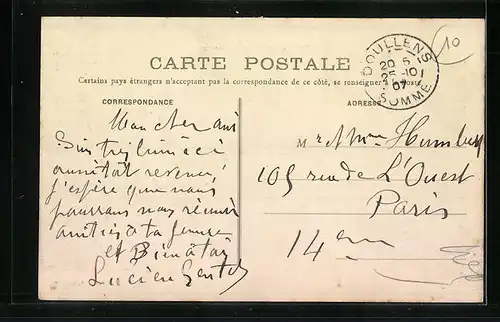 CARTE POSTALE
Certains pays étrangers n'acceptant pas la correspondance de ce côté, se renseigner à la poste
CORRESPONDANCE
ADRESSE
DOULLENS
20 6
25-10
07
SOMME
10
Mon cher ami
J'espère que nous
pourrons nous réunir
amitiés à ta femme
et Bien à toi
Lucien
M r & Mme Humbert
105 rue de L'Ouest
Paris
14 em